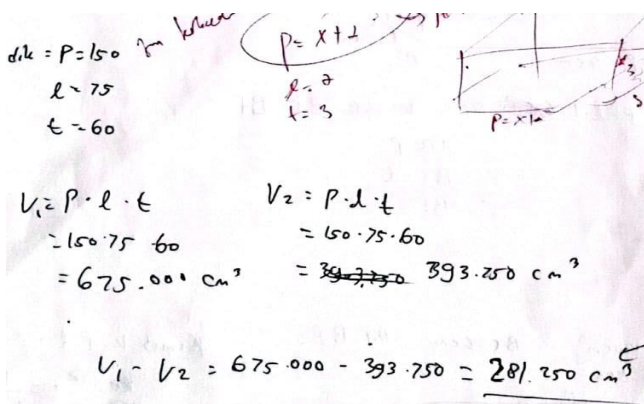 dik = P = 150
l = 75
t = 60
P = x + 2
l = 7
t = 3
P = x + 2
V₁ = P · l · t
= 150 · 75 · 60
= 675.000 cm³
V₂ = P · l · t
= 150 · 75 · 60
= 393.250 cm³
V₁ - V₂ = 675.000 - 393.750 = 281.250 cm³